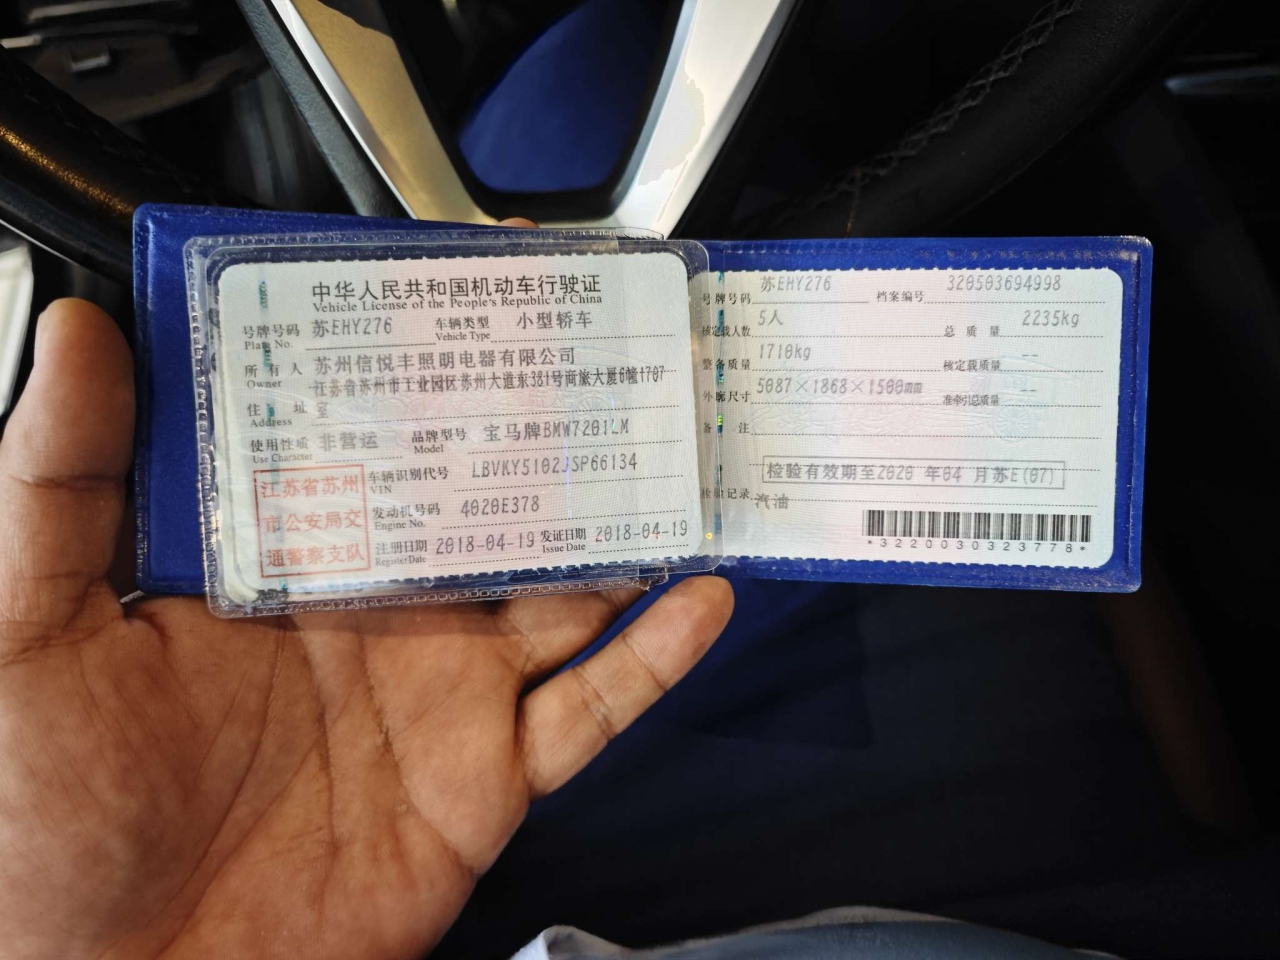 中华人民共和国机动车行驶证
Vehicle License of the People's Republic of China
号牌号码 苏EHY276 车辆类型 小型轿车
Plate No. Vehicle Type
所有人 苏州信悦丰照明电器有限公司
Owner
住址 江苏省苏州市工业园区苏州大道东381号商旅大厦6幢1707室
Address
使用性质 非营运 品牌型号 宝马牌BMW7201LM
Use Character Model
江苏省苏州
市公安局交
通警察支队
车辆识别代号 LBVKY5102JSP66134
VIN
发动机号码 4020E378
Engine No.
注册日期 2018-04-19 发证日期 2018-04-19
Register Date Issue Date
号牌号码 苏EHY276 档案编号 320503694998
核定载人数 5人 总质量 2235kg
整备质量 1710kg 核定载质量 --
外廓尺寸 5087×1868×1500mm 准牵引总质量 --
备注
检验有效期至2020 年04 月苏E(07)
检验记录 汽油
*3220030323778*